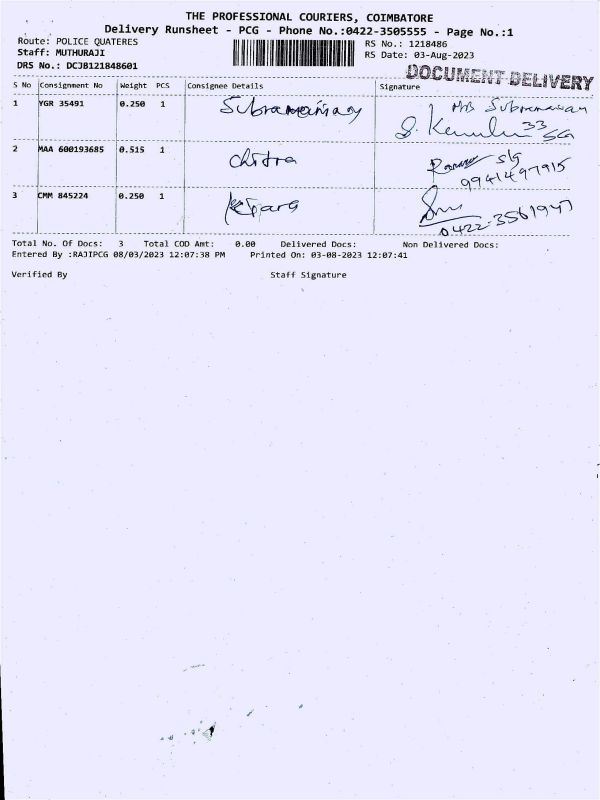 THE PROFESSIONAL COURIERS, COIMBATORE
Delivery Runsheet - PCG - Phone No.:0422-3505555 - Page No.:1
Route: POLICE QUATERES
Staff: MUTHURAJI
DRS No.: DCJB121848601
RS No.: 1218486
RS Date: 03-Aug-2023
DOCUMENT DELIVERY
S No Consignment No Weight PCS Consignee Details Signature
1 YGR 35491 0.250 1 Subramaniay Mrs Subramanian
S. 33
SG
2 MAA 600193685 0.515 1 chitra S/G
9941497915
3 CMM 845224 0.250 1
0422-3561947
Total No. Of Docs: 3 Total COD Amt: 0.00 Delivered Docs: Non Delivered Docs:
Entered By :RAJIPCG 08/03/2023 12:07:38 PM Printed On: 03-08-2023 12:07:41
Verified By Staff Signature